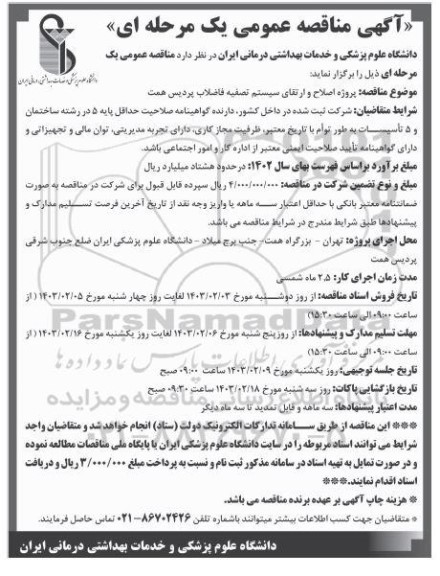 «آگهی مناقصه عمومی یک مرحله ای»
دانشگاه علوم پزشکی و خدمات بهداشتی درمانی ایران
دانشگاه علوم پزشکی و خدمات بهداشتی درمانی ایران در نظر دارد مناقصه عمومی یک
مرحله ای ذیل را برگزار نماید:
موضوع مناقصه: پروژه اصلاح و ارتقای سیستم تصفیه فاضلاب پردیس همت
شرایط متقاضیان: شرکت ثبت شده در داخل کشور، دارنده گواهینامه صلاحیت حداقل پایه ۵ در رشته ساختمان
و ۵ تأسیسات به طور توأم با تاریخ معتبر، ظرفیت مجاز کاری، دارای تجربه مدیریتی، توان مالی و تجهیزاتی و
دارای گواهینامه تأیید صلاحیت ایمنی معتبر از اداره کار و امور اجتماعی باشد.
مبلغ برآورد براساس فهرست بهای سال ۱۴۰۲: درحدود هشتاد میلیارد ریال
مبلغ و نوع تضمین شرکت در مناقصه: ۴/۰۰۰/۰۰۰/۰۰۰ ریال سپرده قابل قبول برای شرکت در مناقصه به صورت
ضمانتنامه معتبر بانکی با حداقل اعتبار سه ماهه یا واریز وجه نقد از تاریخ آخرین فرصت تسلیم مدارک و
پیشنهادها طبق شرایط مندرج در شرایط مناقصه می باشد.
محل اجرای پروژه: تهران - بزرگراه همت- جنب برج میلاد - دانشگاه علوم پزشکی ایران ضلع جنوب شرقی
پردیس همت
مدت زمان اجرای کار: ۲.۵ ماه شمسی
تاریخ فروش اسناد مناقصه: از روز دوشنبه مورخ ۱۴۰۳/۰۲/۰۳ لغایت روز چهار شنبه مورخ ۱۴۰۳/۰۲/۰۵ (از
ساعت ۰۹:۰۰ الی ساعت ۱۵:۳۰)
مهلت تسلیم مدارک و پیشنهادها: از روزپنج شنبه مورخ ۱۴۰۳/۰۲/۰۶ لغایت روز یکشنبه مورخ ۱۴۰۳/۰۲/۱۶ (از
ساعت ۰۹:۰۰ الی ساعت ۱۵:۳۰)
تاریخ جلسه توجیهی: روز یکشنبه مورخ ۱۴۰۳/۰۲/۰۹ ساعت ۰۹:۰۰ صبح
تاریخ بازگشایی پاکات: روز سه شنبه مورخ ۱۴۰۳/۰۲/۱۸ ساعت ۰۹:۳۰ صبح
مدت اعتبار پیشنهادها: سه ماهه و قابل تمدید تا سه ماه دیگر
*** این مناقصه از طریق سامانه تدارکات الکترونیک دولت (ستاد) انجام خواهد شد و متقاضیان واجد
شرایط می توانند اسناد مربوطه را در سایت دانشگاه علوم پزشکی ایران یا پایگاه ملی مناقصات مطالعه نموده
و در صورت تمایل به تهیه اسناد در سامانه مذکور ثبت نام و نسبت به پرداخت مبلغ ۳/۰۰۰/۰۰۰ ریال و دریافت
اسناد اقدام نمایند.***
* هزینه چاپ آگهی بر عهده برنده مناقصه می باشد.
* متقاضیان جهت کسب اطلاعات بیشتر میتوانند باشماره تلفن ۸۶۷۰۲۴۲۶-۰۲۱ تماس حاصل فرمایند.
دانشگاه علوم پزشکی و خدمات بهداشتی درمانی ایران